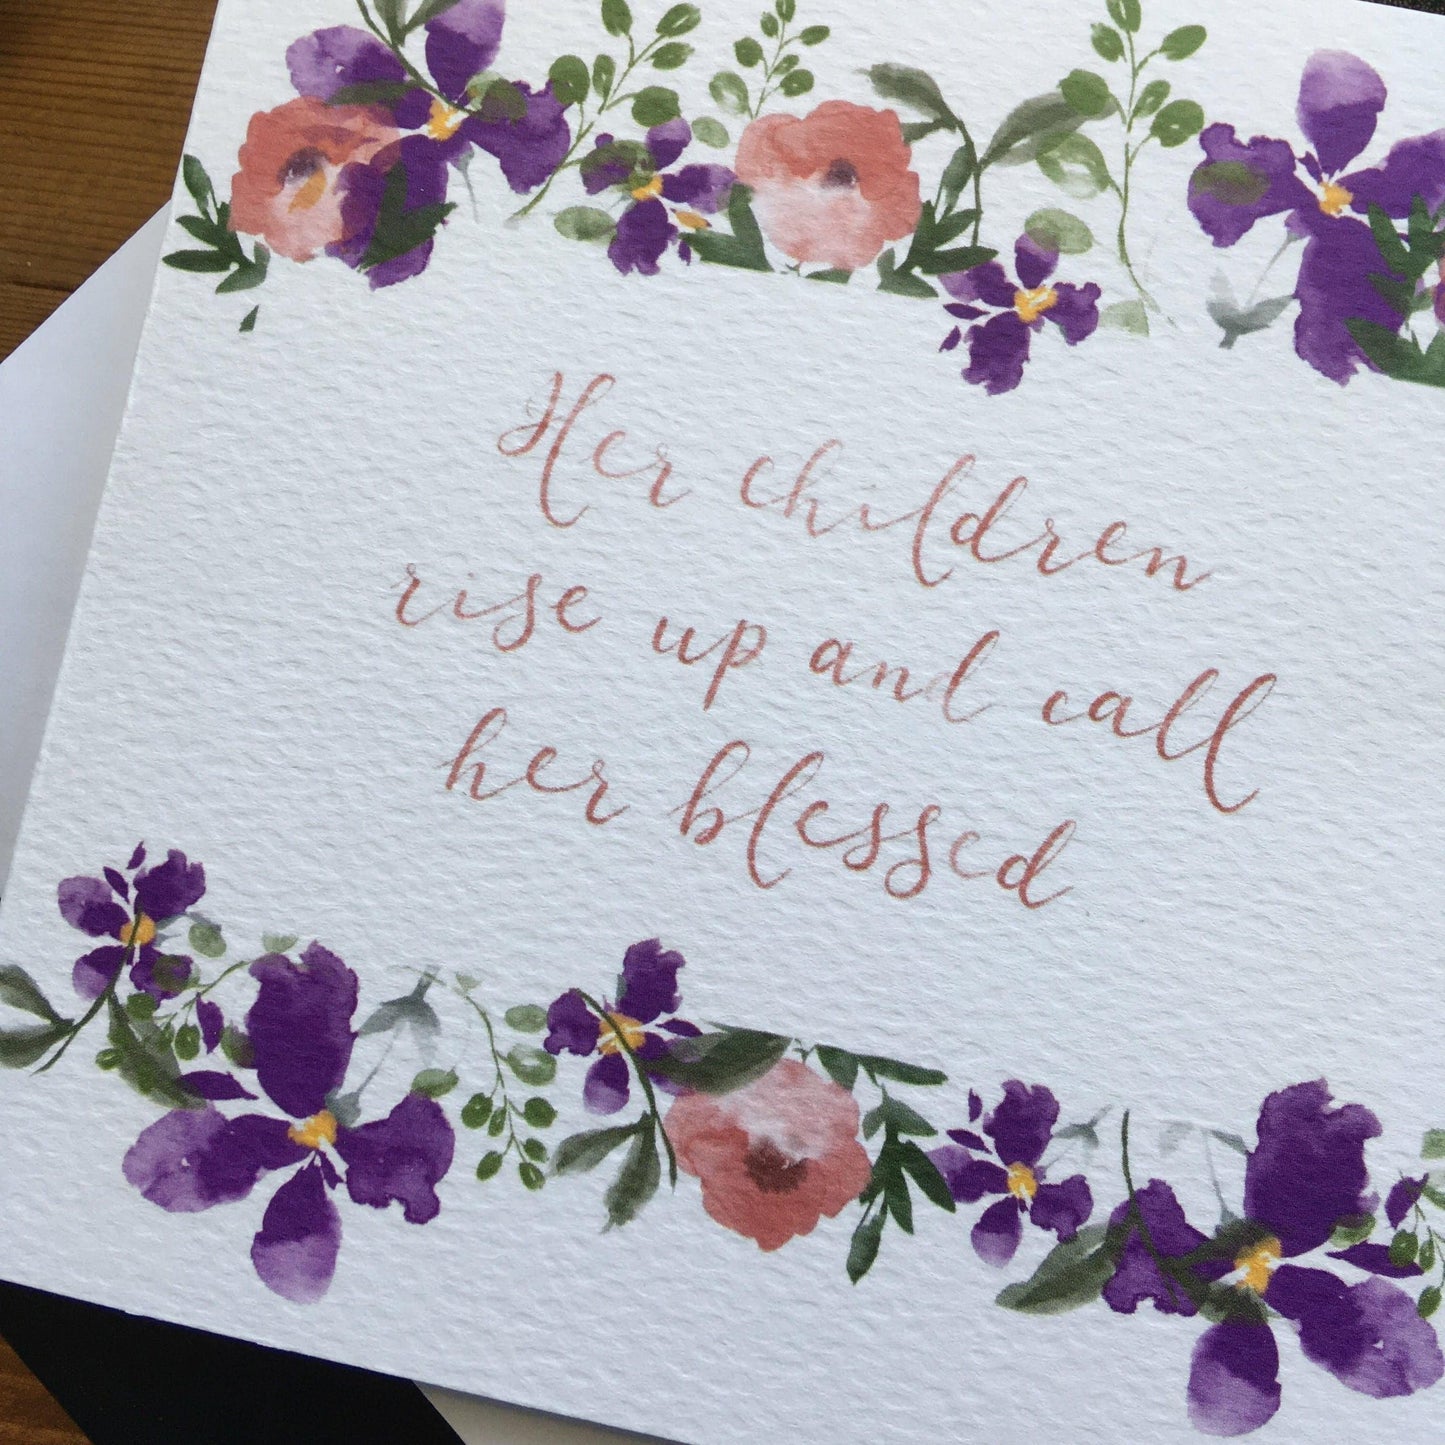 Her children
rise up and call
her blessed